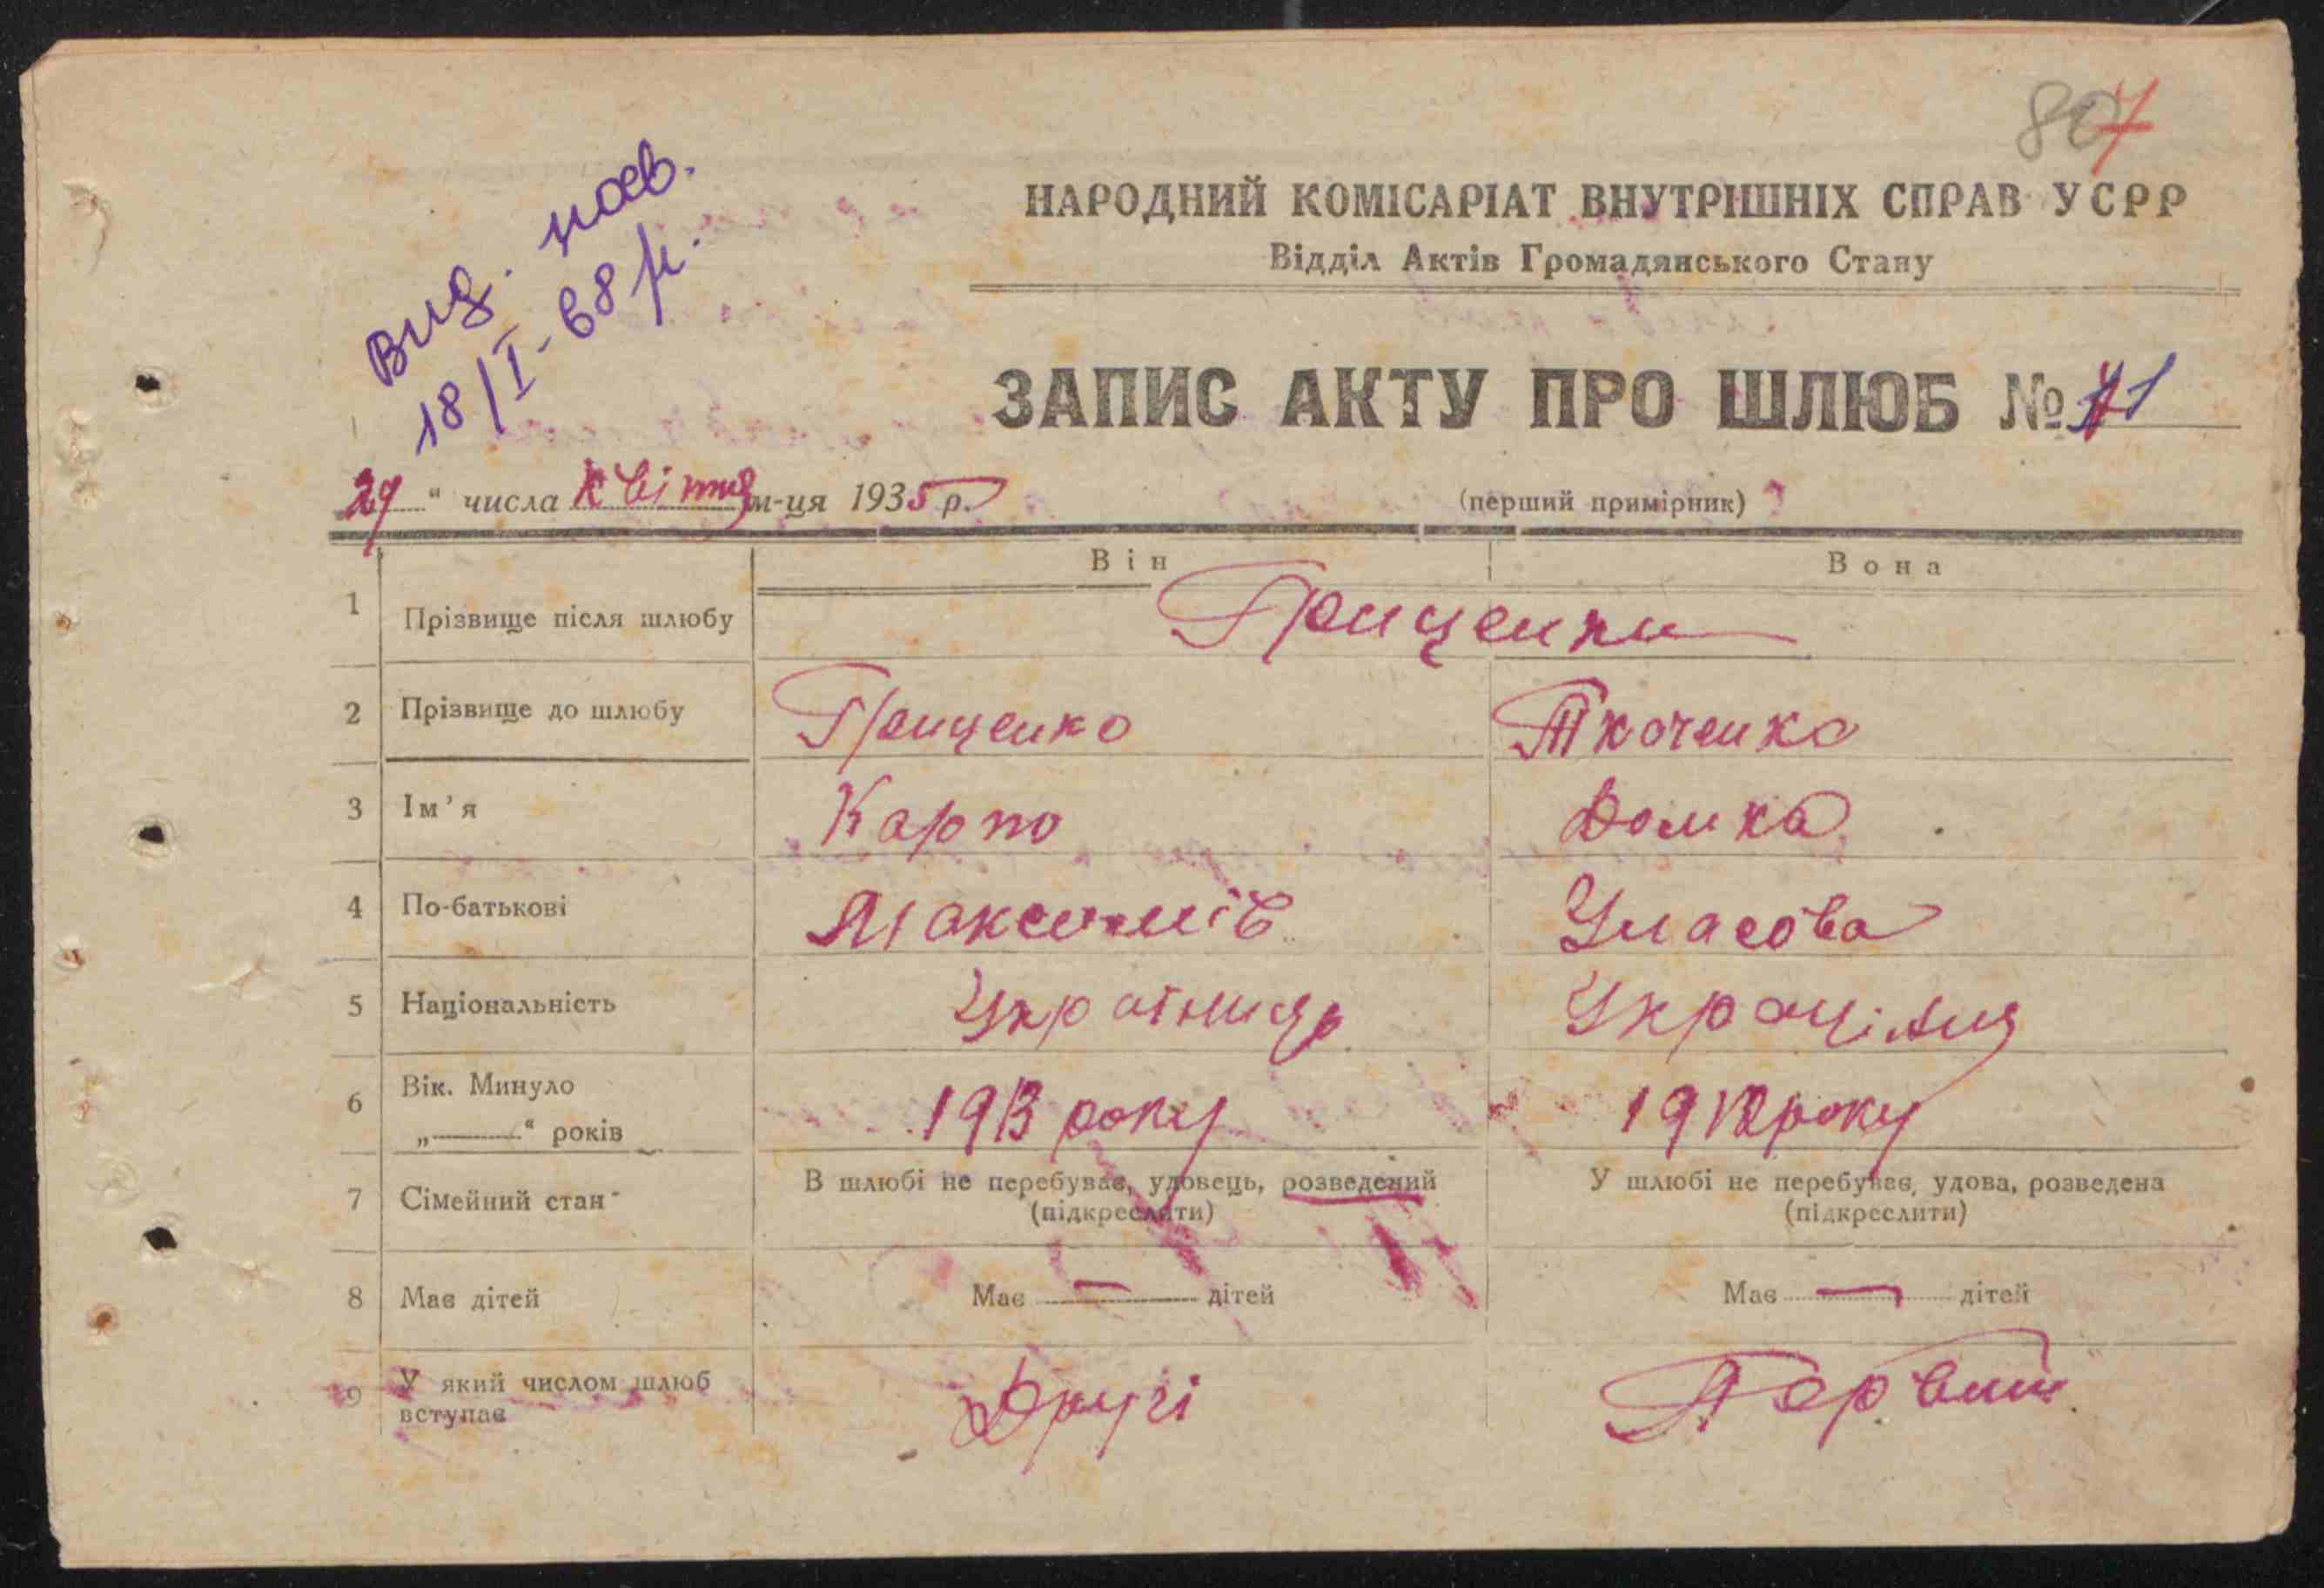 807
Вид. пов.
18/I-68 р.
НАРОДНИЙ КОМІСАРІАТ ВНУТРІШНІХ СПРАВ УСРР
Відділ Актів Громадянського Стану
ЗАПИС АКТУ ПРО ШЛЮБ № 11
29 " числа Квітня м-ця 1935 р.
(перший примірник)
Він Вона
1 Прізвище після шлюбу Грищенки
2 Прізвище до шлюбу Грищенко Ткаченко
3 Ім'я Карпо Домка
4 По-батькові Максимів Уласова
5 Національність Українць Українця
6 Вік. Минуло
„ " років 1913 року 1912 року
7 Сімейний стан В шлюбі не перебуває, удовець, розведений У шлюбі не перебуває, удова, розведена
(підкреслити) (підкреслити)
8 Має дітей Має — дітей Має — дітей
9 У який числом шлюб
вступає Другі Первий